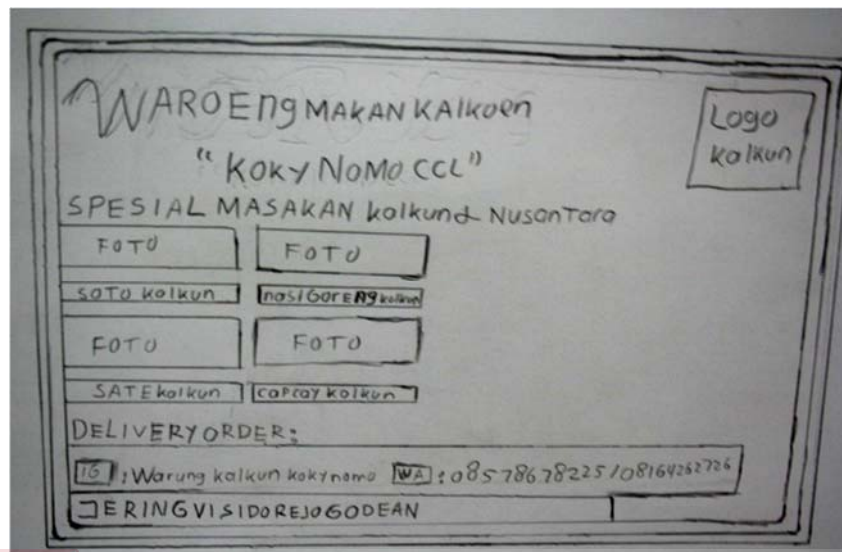 WAROEng MAKAN KAlkoen
Logo
kalkun
"KOKY NOMO CCL"
SPESIAL MASAKAN kalkun & NusanTara
FOTO FOTO
SOTO kalkun nasi GorENg kalkun
FOTO FOTO
SATE kalkun capcay kalkun
DELIVERY ORDER:
IG : Warung kalkun kokynomo WA : 08578678225 / 08164262726
JERINGVISIDOREJOGODEAN